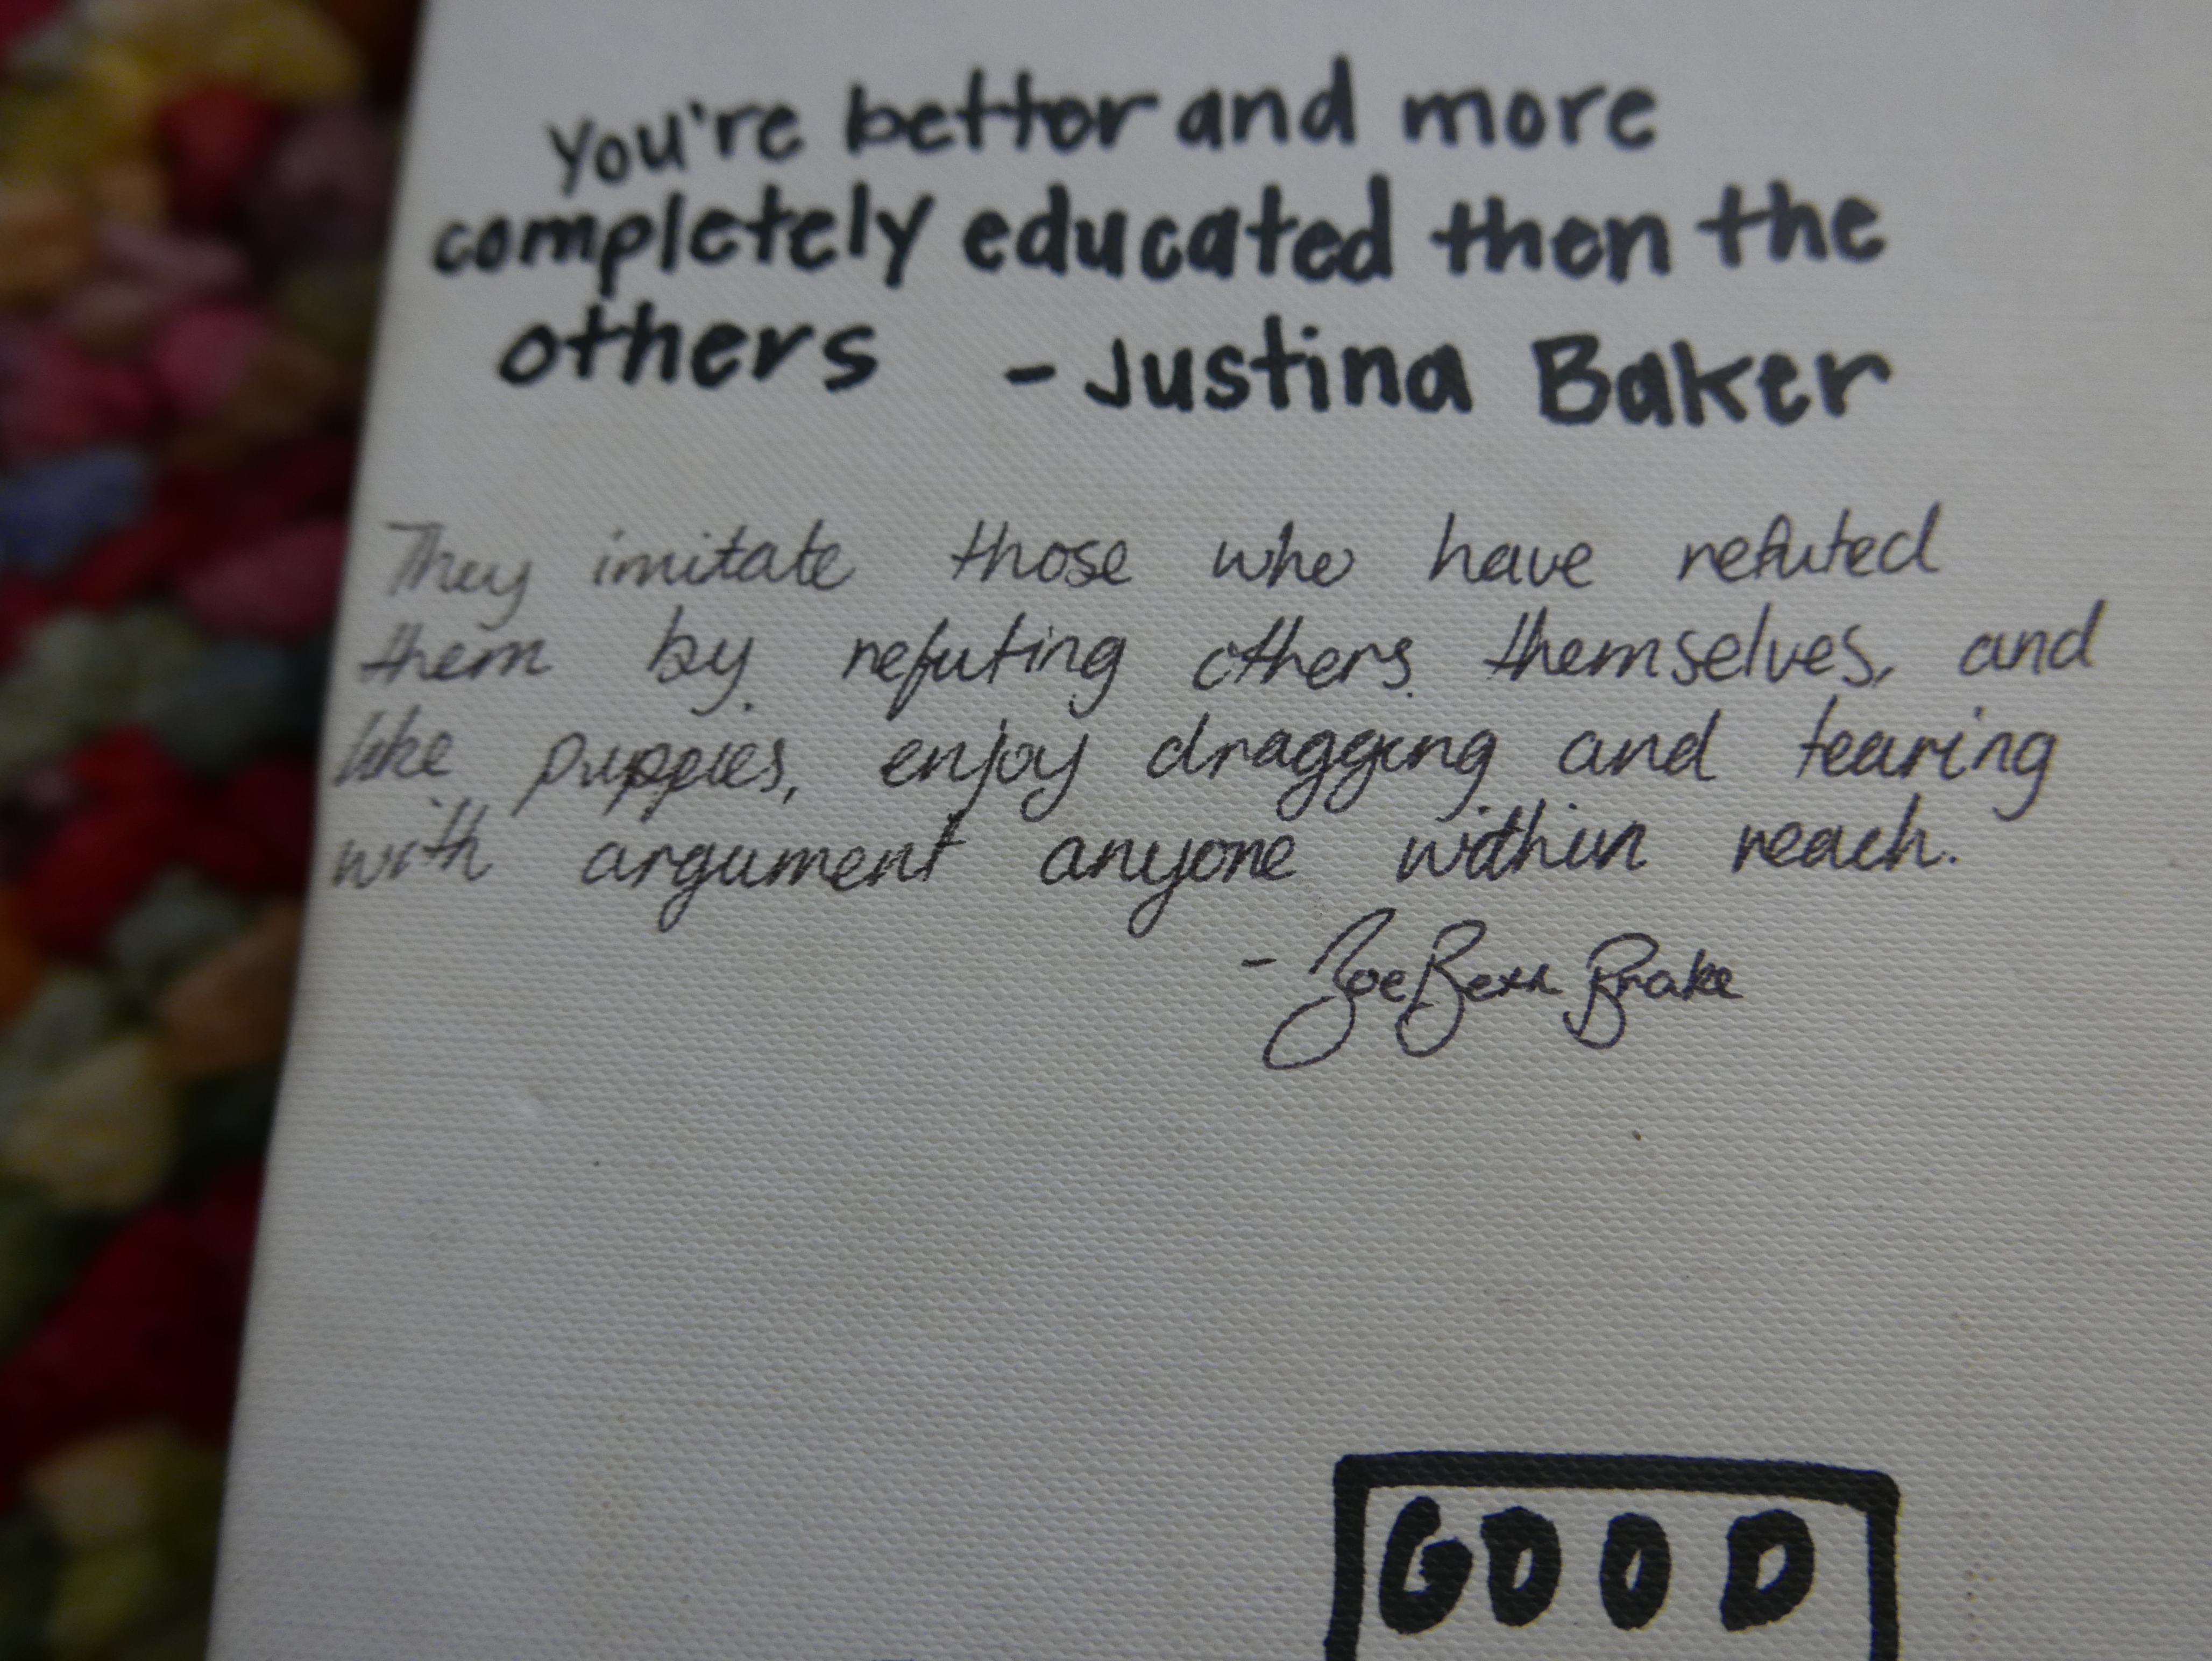 You're better and more
completely educated then the
others - Justina Baker
They imitate those who have refuted
them by refuting others themselves, and
like puppies, enjoy dragging and tearing
with argument anyone within reach.
- Zoe Beth Brake
GOOD